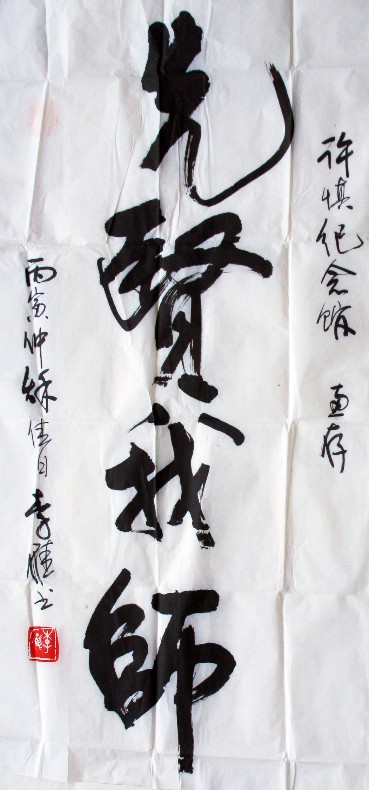 許慎纪念館 惠存
先賢我師
丙寅仲秋佳日李雁书